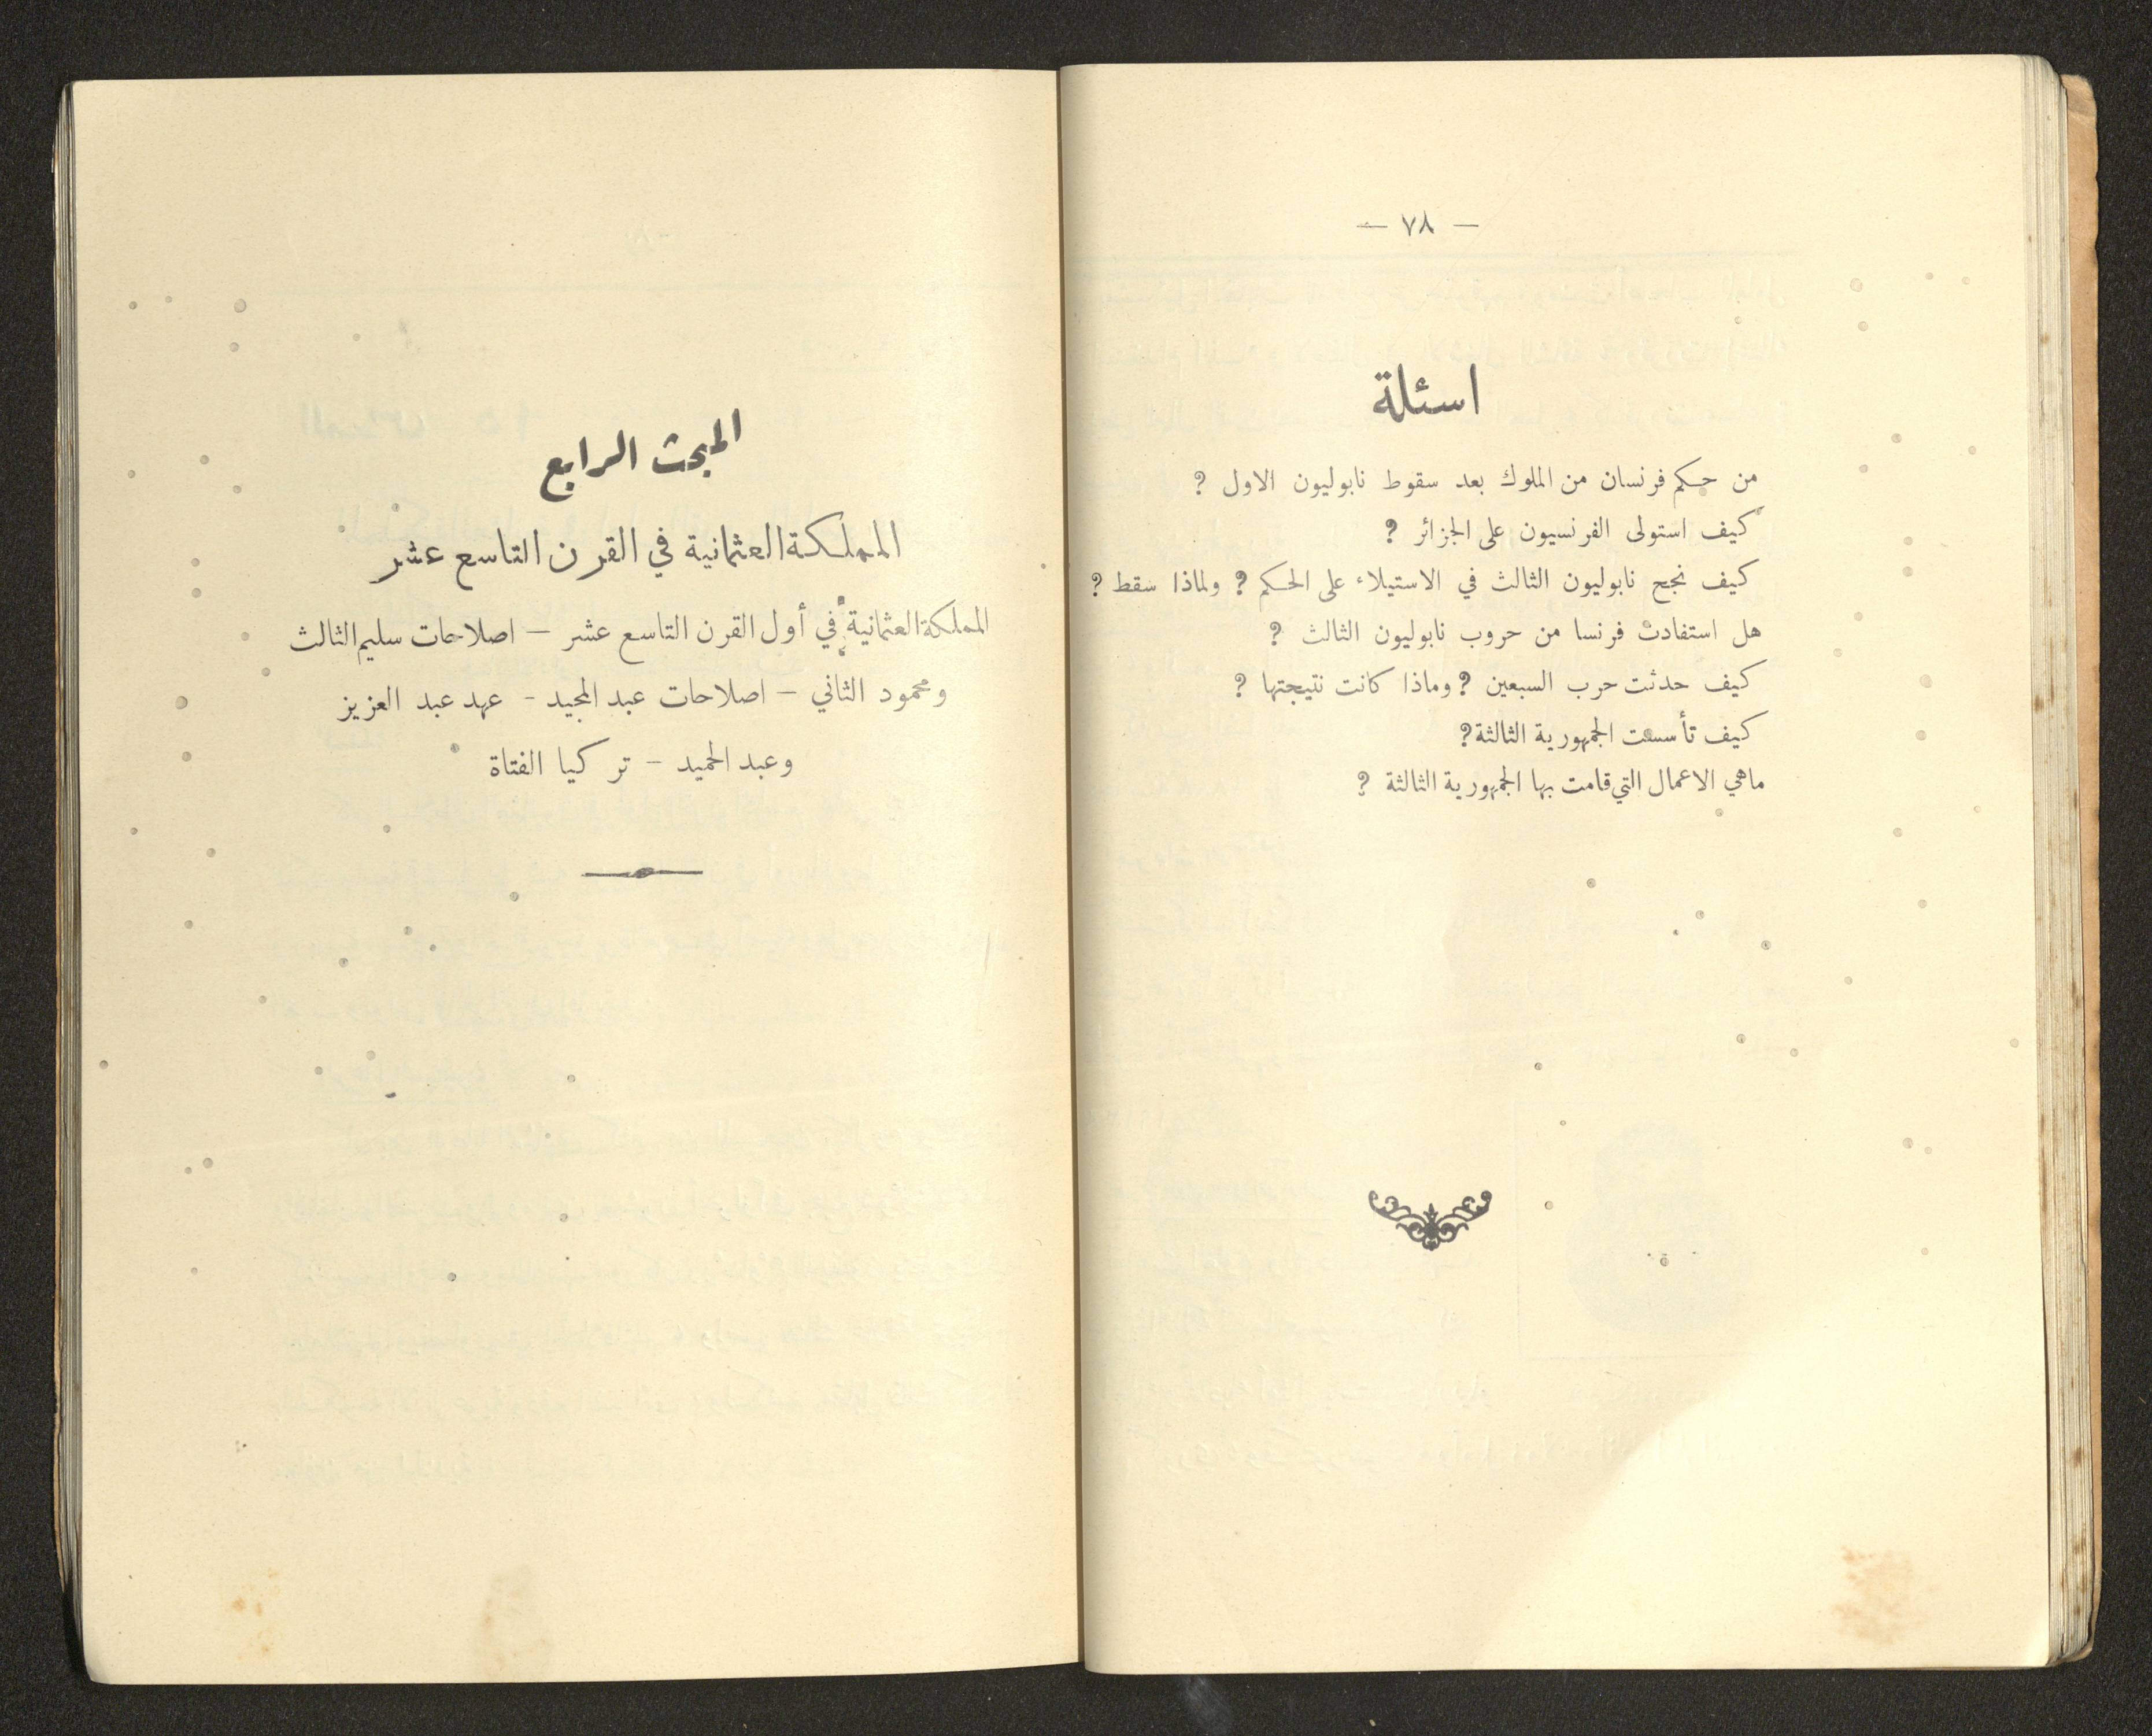 — ٧٨ —
اسئلة
من حكم فرنسان من الملوك بعد سقوط نابوليون الاول ؟
كيف استولى الفرنسيون على الجزائر ؟
كيف نجح نابوليون الثالث في الاستيلاء على الحكم ؟ ولماذا سقط ؟
هل استفادت فرنسا من حروب نابوليون الثالث ؟
كيف حدثت حرب السبعين ؟ وماذا كانت نتيجتها ؟
كيف تأسست الجمهورية الثالثة ؟
ماهي الاعمال التي قامت بها الجمهورية الثالثة ؟
المبحث الرابع
المملكة العثمانية في القرن التاسع عشر
المملكة العثمانية في أول القرن التاسع عشر — اصلاحات سليم الثالث
ومحمود الثاني — اصلاحات عبد المجيد - عهد عبد العزيز
وعبد الحميد — تركيا الفتاة